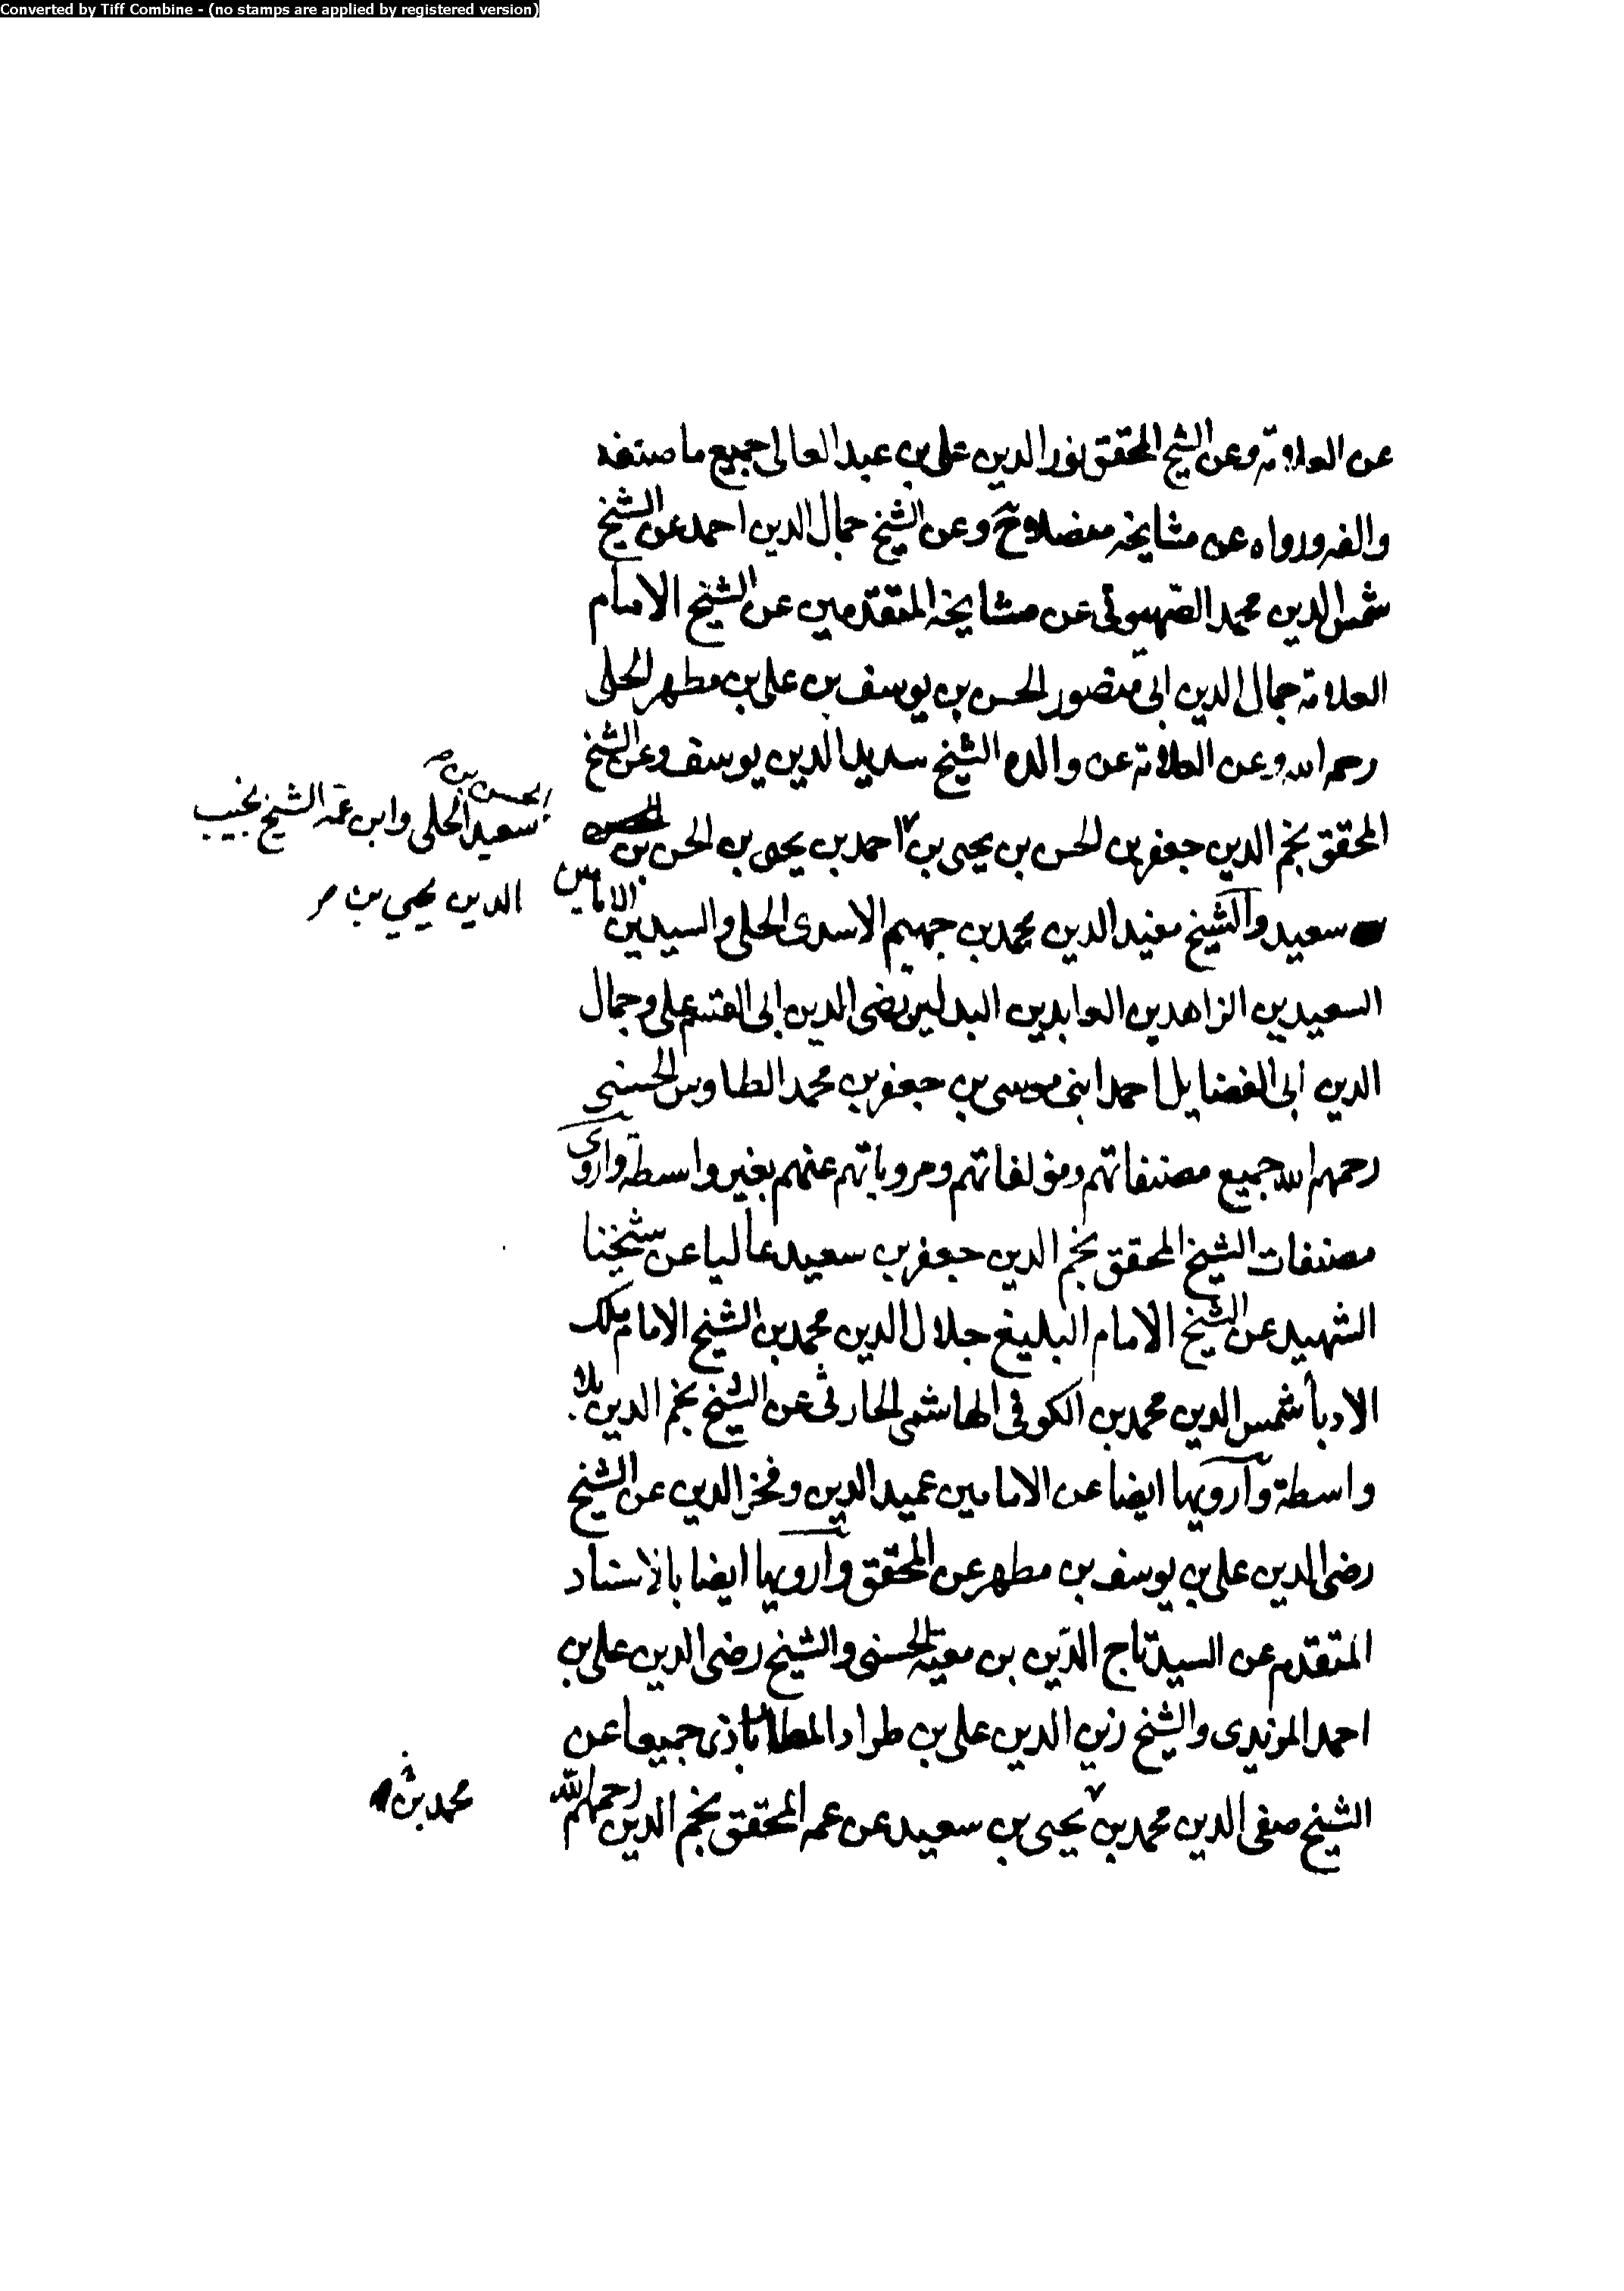 Converted by Tiff Combine - (no stamps are applied by registered version)
عن العلامة وعن الشيخ المحقق نور الدين علي بن عبد العالى جميع ما صنفه
والفه ورواه عن مشايخه مفصلا وعن الشيخ جمال الدين احمد عن الشيخ
شمس الدين محمد الصهيونى عن مشايخه المتقدمين عن الشيخ الامام
العلامة جمال الدين ابى منصور الحسن بن يوسف بن على بن مطهر الحلى
رحمه الله وعن العلامة عن والده الشيخ سديد الدين يوسف وعن الشيخ
المحقق نجم الدين جعفر بن الحسن بن يحيى بن احمد بن يحيى بن الحسن بن
الحسن بن
سعيد الحلى وابن عمه الشيخ نجيب
الدين يحيي بن
سعيد والشيخ مفيد الدين محمد بن جهيم الاسدى الحلى والسيدين الامامين
السعيدين الزاهدين العابدين البدلين رضى الدين ابى القسم على وجمال
الدين ابى الفضايل احمد ابنى موسى بن جعفر بن محمد الطاوس الحسنى
رحمهم الله جميع مصنفاتهم ومؤلفاتهم ومروياتهم عنهم بغير واسطة واروى
مصنفات الشيخ المحقق نجم الدين جعفر بن سعيد عاليا عن شيخنا
الشهيد عن الشيخ الامام البليغ جلال الدين محمد بن الشيخ الامام ملك
الادبأ شمس الدين محمد بن الكوفى الهاشمى الحارثى عن الشيخ نجم الدين بلا
واسطة وارويها ايضا عن الامامين عميد الدين وفخر الدين عن الشيخ
رضى الدين على بن يوسف بن مطهر عن المحقق وارويها ايضا بالاسناد
المتقدم عن السيد تاج الدين بن معية الحسنى والشيخ رضى الدين على بن
احمد المزيدى والشيخ زين الدين على بن طراد المطارباذى جميعا عن
الشيخ صفى الدين محمد بن يحيى بن سعيد عن عمه المحقق نجم الدين رحمهم الله
محمد بن